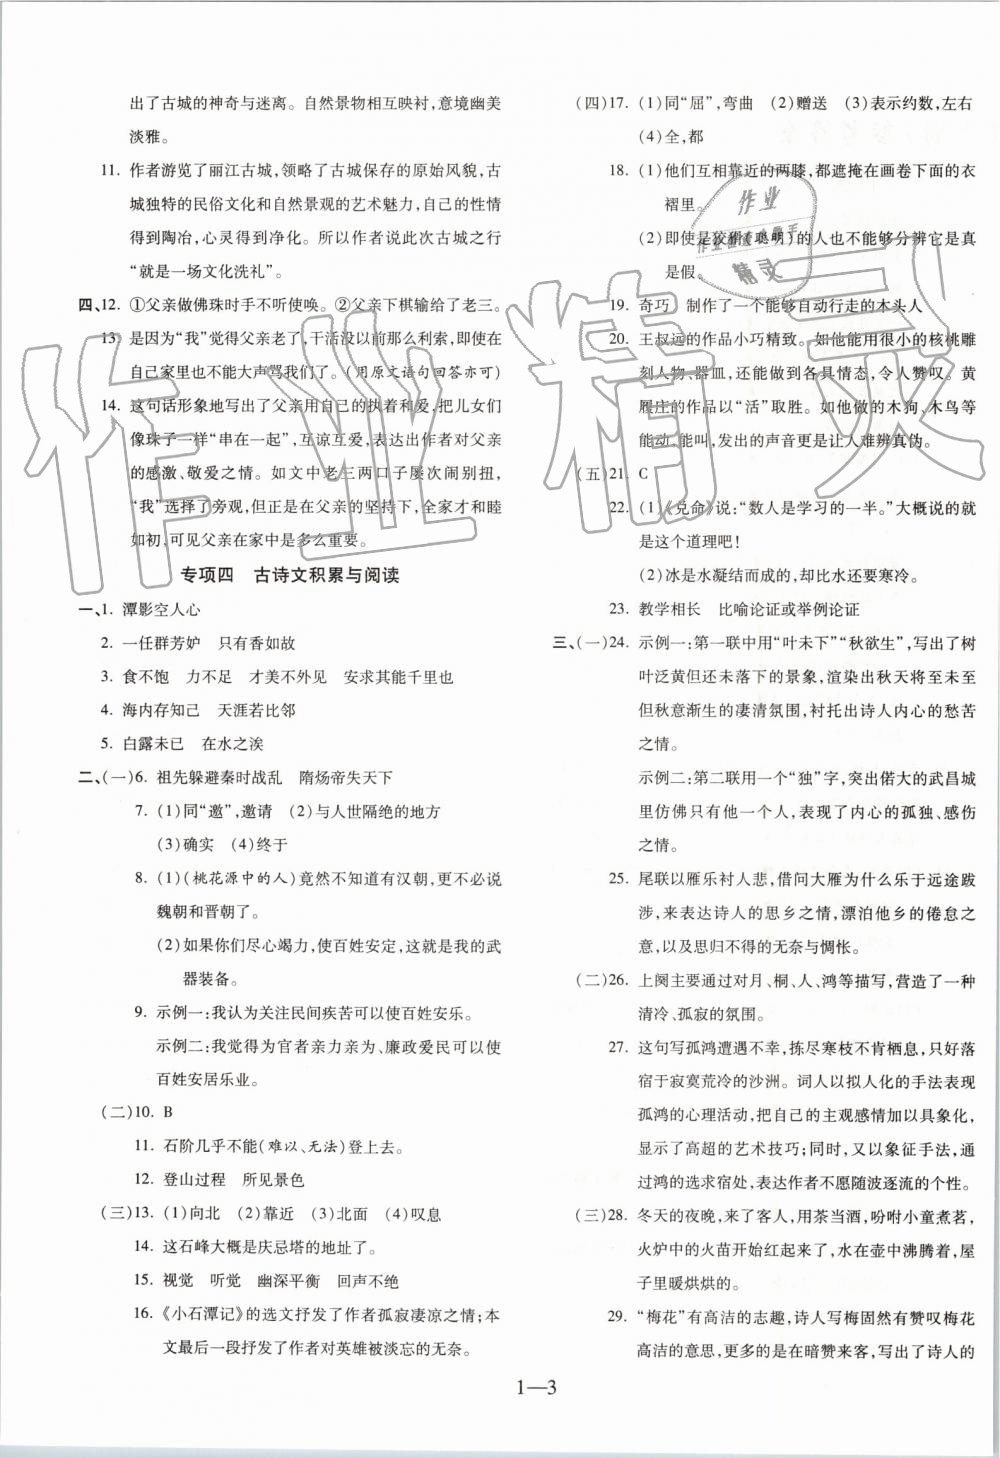 出了古城的神奇与迷离。自然景物相互映衬,意境幽美
淡雅。
11. 作者游览了丽江古城,领略了古城保存的原始风貌,古
城独特的民俗文化和自然景观的艺术魅力,自己的性情
得到陶冶,心灵得到净化。所以作者说此次古城之行
“就是一场文化洗礼”。
四、12. ①父亲做佛珠时手不听使唤。②父亲下棋输给了老三。
13. 是因为“我”觉得父亲老了,干活没以前那么利索,即使在
自己家里也不能大声骂我们了。(用原文语句回答亦可)
14. 这句话形象地写出了父亲用自己的执着和爱,把儿女们
像珠子一样“串在一起”,互谅互爱,表达出作者对父亲
的感激、敬爱之情。如文中老三两口子屡次闹别扭,
“我”选择了旁观,但在父亲的坚持下,全家才和睦
如初,可见父亲在家中是多么重要。
专项四 古诗文积累与阅读
一、1. 潭影空人心
2. 一任群芳妒 只有香如故
3. 食不饱 力不足 才美不外见 安求其能千里也
4. 海内存知己 天涯若比邻
5. 白露未已 在水之涘
二、(一)6. 祖先躲避秦时战乱 隋炀帝失天下
7. (1)同“邀”,邀请 (2)与人世隔绝的地方
(3)确实 (4)终于
8. (1)(桃花源中的人)竟然不知道有汉朝,更不必说
魏朝和晋朝了。
(2)如果你们尽心竭力,使百姓安定,这就是我的武
器装备。
9. 示例一:我认为关注民间疾苦可使百姓安乐。
示例二:我觉得为官者亲力亲为、廉政爱民可以使
百姓安居乐业。
(二)10. B
11. 石阶几乎不能(难以、无法)登上去。
12. 登山过程 所见景色
(三)13. (1)向北 (2)靠近 (3)北面 (4)叹息
14. 这石峰大概是庆忌塔的地址了。
15. 视觉 听觉 幽深平衡 回声不绝
16. 《小石潭记》的选文抒发了作者孤寂凄凉之情;本
文最后一段抒发了作者对英雄被淡忘的无奈。
(四)17. (1)同“屈”,弯曲 (2)赠送 (3)表示约数,左右
(4)全,都
18. (1)他们互相靠近的两膝,都遮掩在画卷下面的衣
褶里。
(2)即使是狡猾(聪明)的人也不能够分辨它是真
是假。
19. 奇巧 制作了一个能够自动行走的木头人
20. 王叔远的作品小巧精致。如他能用很小的核桃雕
刻人物、器皿,还能做到各具情态,令人赞叹。黄
履庄的作品以“活”取胜。如他做的木狗、木鸟等
能动、能叫,发出的声音更是让人难辨真伪。
(五)21. C
22. (1)《兑命》说:“教人是学习的一半。”大概说的就
是这个道理吧!
(2)冰是水凝结而成的,却比水还要寒冷。
23. 教学相长 比喻论证或举例论证
三、(一)24. 示例一:第一联中用“叶未下”“秋欲生”,写出了树
叶泛黄但并未落下的景象,渲染出秋天将至未至
但秋意渐生的凄清氛围,衬托出诗人内心的愁苦
之情。
示例二:第二联用一个“独”字,突出偌大的武昌城
里仿佛只有他一个人,表现了内心的孤独、感伤
之情。
25. 尾联以雁乐衬人悲,借问大雁为什么乐于远途跋
涉,来表达诗人的思乡之情,漂泊他乡的倦怠之
意,以及思归不得的无奈与惆怅。
(二)26. 上阕主要通过对月、桐、人、鸿等描写,营造了一种
清冷、孤寂的氛围。
27. 这句写孤鸿遭遇不幸,拣尽寒枝不肯栖息,只好落
宿于寂寞荒冷的沙洲。词人以拟人化的手法表现
孤鸿的心理活动,把自己的主观感情加以具象化,
显示了高超的艺术技巧;同时,又以象征手法,通
过鸿的选求宿处,表达作者不愿随波逐流的个性。
(三)28. 冬天的夜晚,来了客人,用茶当酒,吩咐小童煮茗,
火炉中的火苗开始红起来了,水在壶中沸腾着,屋
子里暖烘烘的。
29. “梅花”有高洁的志趣,诗人写梅固然有赞叹梅花
高洁的意思,更多的是在暗赞来客,写出了诗人的
1—3
作业精灵
作业
作业检查小帮手
精灵